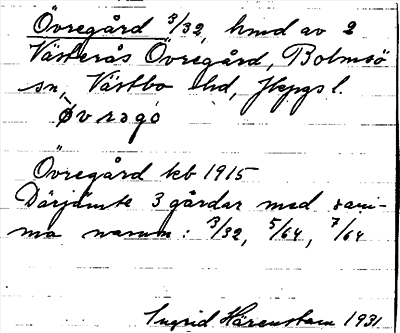 Övregård 3/32, hmd av 2
Västerås Övregård, Bolmsö
sn, Västbo hd, Jkpgs l.
Øvrəgo
Övregård kb 1915
Därjämte 3 gårdar med sam-
ma namn: 3/32, 5/64, 7/64
Ingrid Härenstam 1931